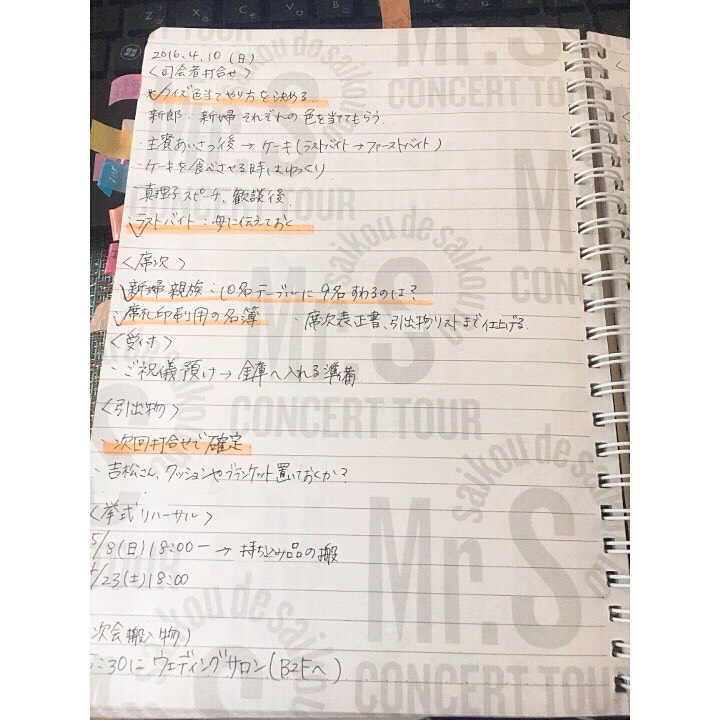 2016.4.10(日)
〈司会者打合せ〉
クイズ色当てやり方を決める
新郎・新婦 それぞれの色を当ててもらう
・主賓あいさつ後 → ケーキ(ラストバイト→ファーストバイト)
・ケーキを食べさせる時はゆっくり
真理子スピーチ、歓談後
・ラストバイト・母に伝えておく
〈席次〉
・新婦親族:10名テーブルに9名すわるのは?
・席札印刷用の名簿 ・席次表正書、引出物リストまで仕上げる
〈受付〉
・ご祝儀預け → 金庫へ入れる準備
〈引出物〉
・次回打合せで確定
・吉松さん、クッションやブランケット置いておくか?
〈挙式リハーサル〉
5/8(日)18:00ー → 持ち込み品の搬
/23(土)18:00
次会搬入物〉
:30に ウェディングサロン(B2Fへ)
Mr.S
saikou de saikou de
CONCERT TOUR
Mr.S
saikou de saikou de
CONCERT TOUR
Mr.S
saikou de
CONCERT TOUR